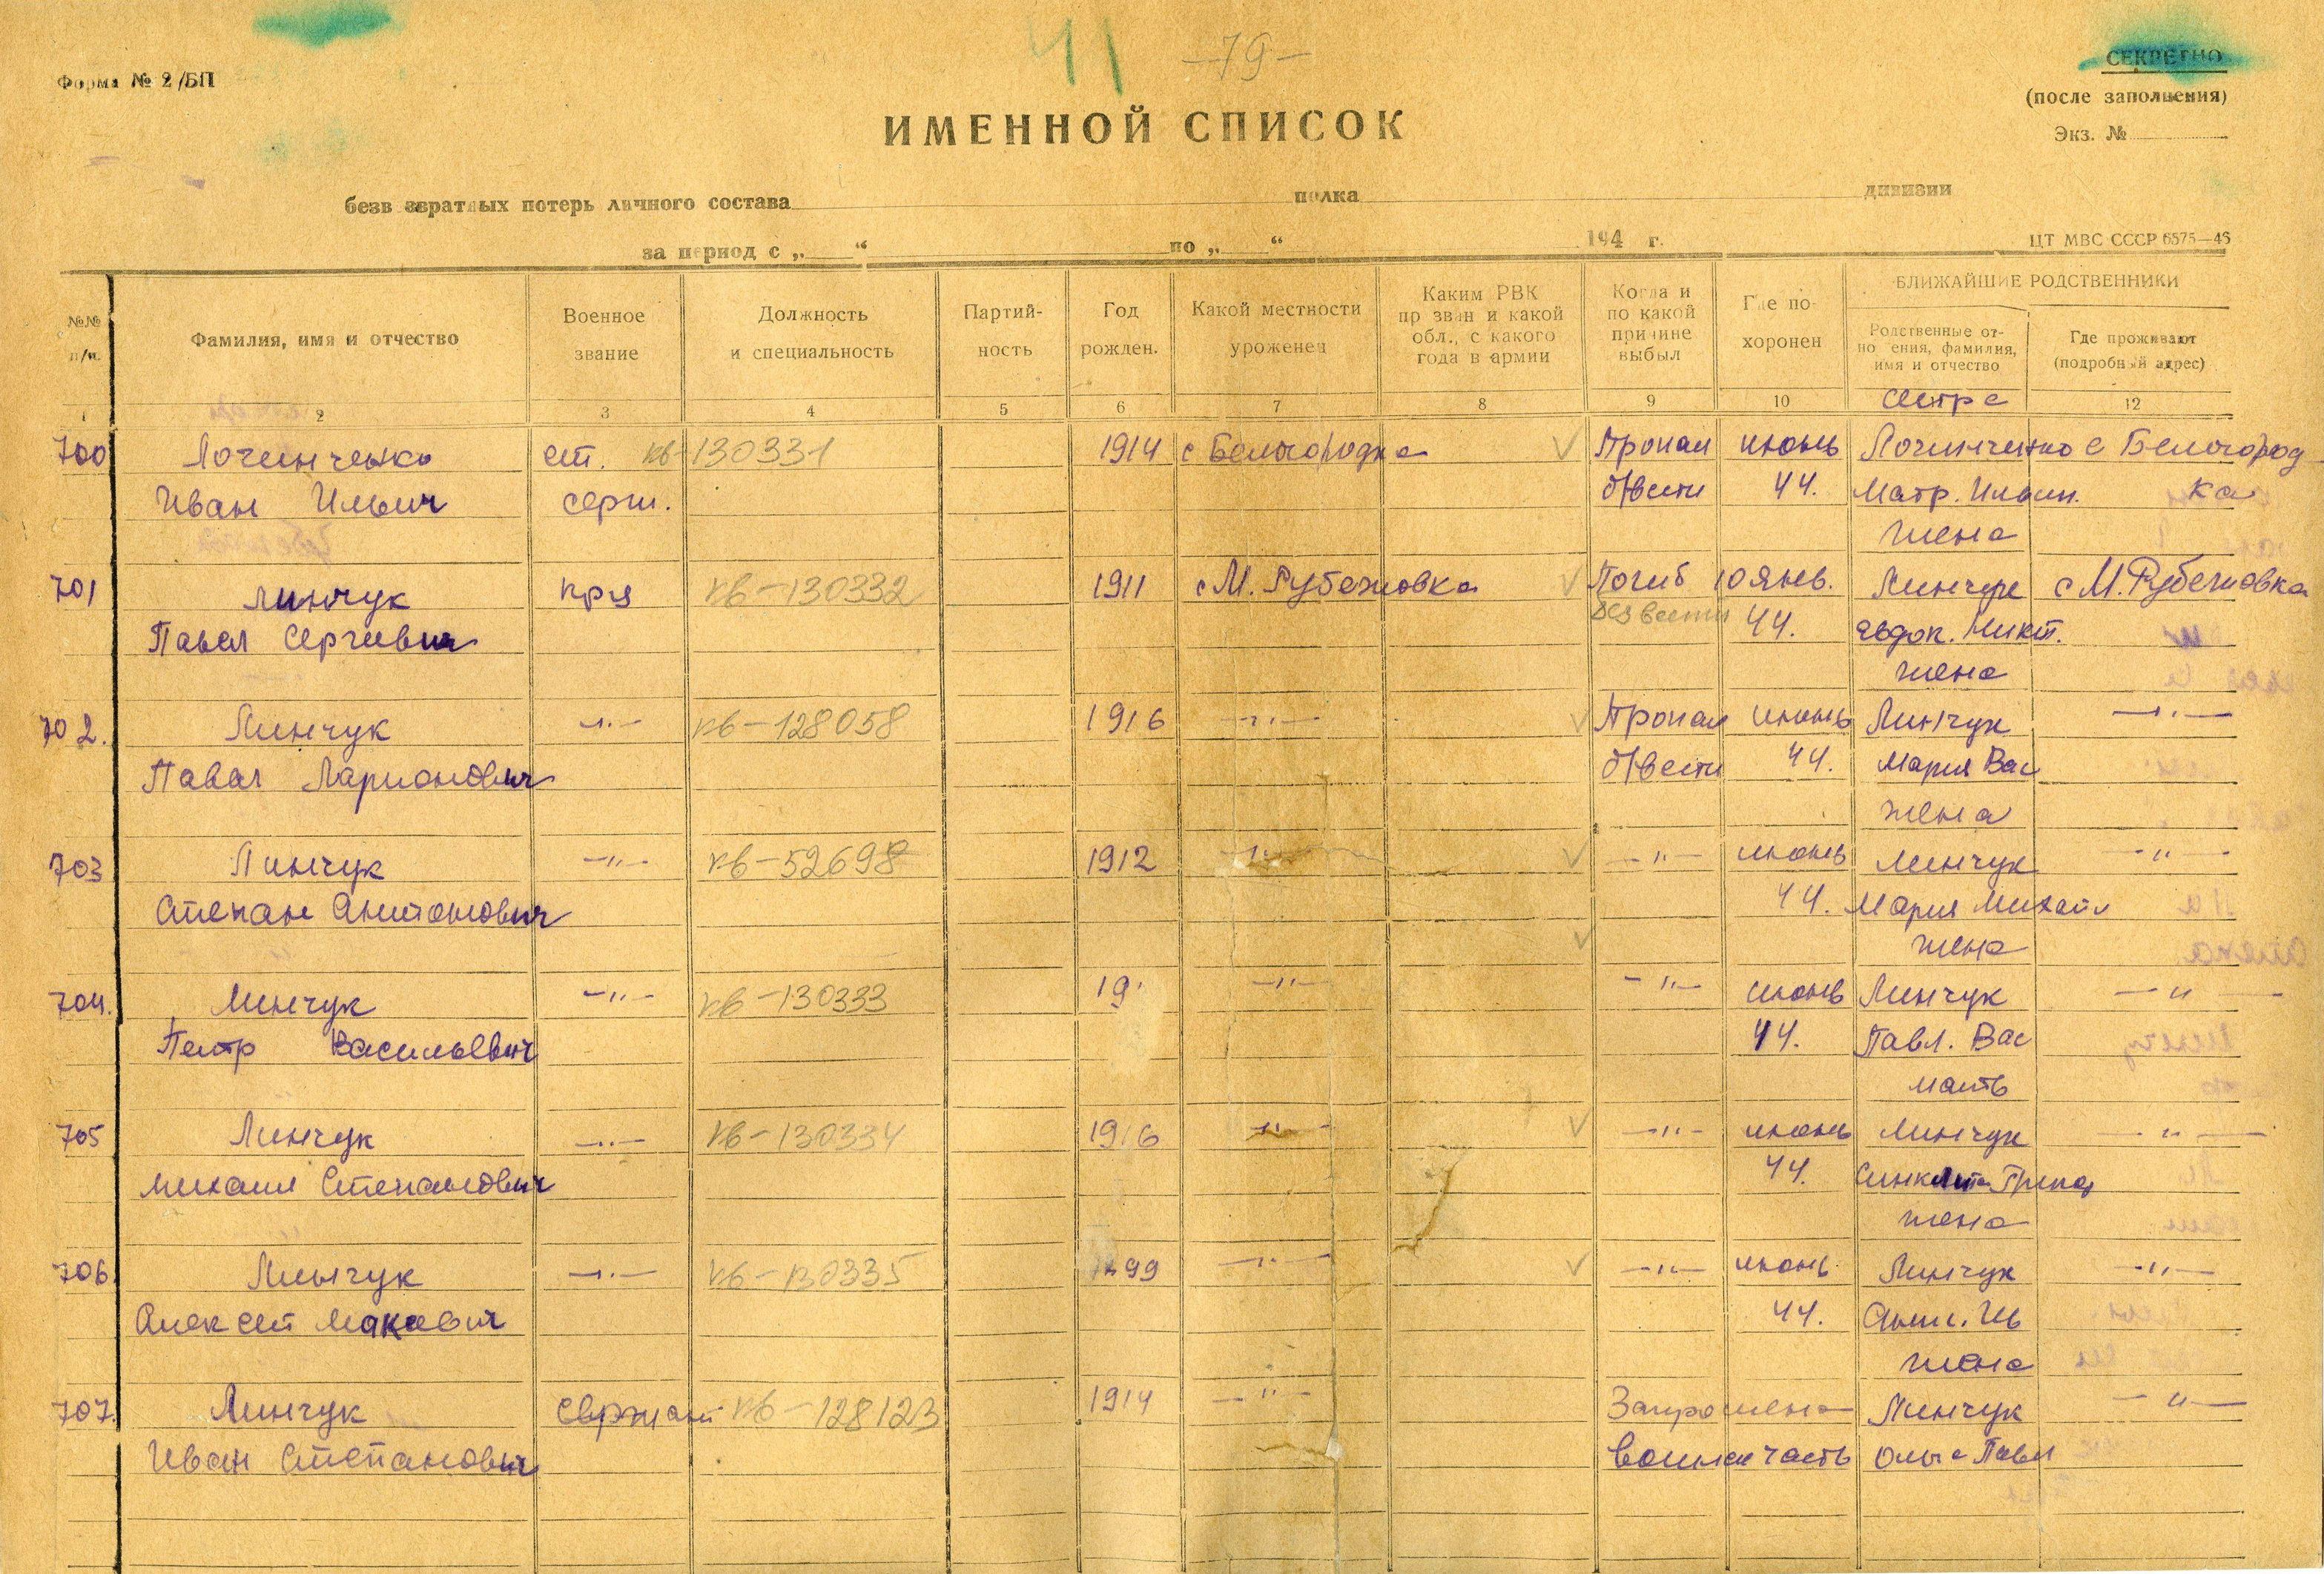 41
-79-
Форма № 2/БП
СЕКРЕТНО
(после заполнения)
Экз. №
ИМЕННОЙ СПИСОК
безвозвратных потерь личного состава полка дивизии
за период с „ “ по „ “ 194 г.
ЦТ МВС СССР 6575—46
№№ п/п.
Фамилия, имя и отчество
Военное звание
Должность и специальность
Партий-ность
Год рожден.
Какой местности уроженец
Каким РВК призван и какой обл., с какого года в армии
Когда и по какой причине выбыл
Где по-хоронен
БЛИЖАЙШИЕ РОДСТВЕННИКИ
Родственные от-ношения, фамилия, имя и отчество
Где проживают (подробный адрес)
1 2 3 4 5 6 7 8 9 10 сестра 12
700 ст. кв-130331 1914 с Белогородка V Пропал июнь с Белогород-
Иван Ильич серж. б/вести 44. Матр. Ильин. ка
жена
701 Линчук кр-ц кв-130332 1911 с М. Рубежовка V Погиб 10 янв. Линчук с М. Рубежовка
Павел Сергеевич без вести 44. Евдок. Никит.
жена
702. Линчук —"— кв-128058 1916 —"— V Пропал июнь Линчук —"—
Павел Ларионович б/вести 44. Мария Вас
жена
703 Линчук —"— кв-52698 1912 —"— V —"— июнь Линчук —"—
Степан Антонович 44. Мария Михайл
V жена
704. Линчук —"— кв-130333 19 —"— —"— июнь Линчук —"—
Петр Васильевич 44. Павл. Вас
мать
705 Линчук —"— кв-130334 1916 —"— V —"— июнь Линчук —"—
Михаил Степанович 44.
жена
706. Линчук —"— кв-130335 1899 —"— V —"— июнь Линчук —"—
Алексей Макеевич 44.
жена
707. Линчук сержант кв-128123 1914 —"— Запрошена Линчук —"—
Иван Степанович часть Ольга Павл